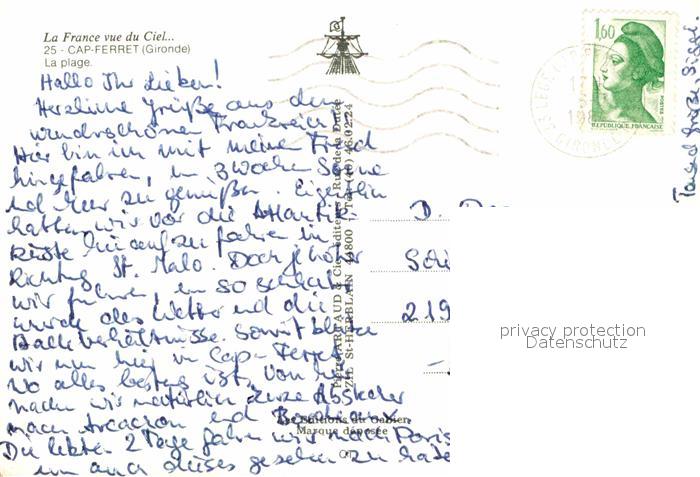 La France vue du Ciel...
25 - CAP-FERRET (Gironde)
La plage.
Hallo Ihr Lieben!
Herzliche Grüße aus dem
wunderschönen Frankreich.
Hier bin ich mit meine Freund
hingefahren, um 3 Wochen Sonne
und Meer zu genießen. Eigentlich
hatten wir vor die Atlantik-
küste hinaufzufahren in
Richtung St. Malo. Doch je höher
wir fuhren, um so schlechter
wurde das Wetter und die
Badeverhältnisse. Somit bleiben
wir nun hier in Cap-Ferret
wo alles bestens ist. Von hier
machen wir natürlich kurze Abstecher
nach Arcachon und Bordeaux.
Die letzten 2 Tage fahren wir nach Paris
um auch dieses gesehen zu habe
Tausend Grüße
Pierre ARTAUD & Cie, éditeurs
Rue de la
ZIL St-HERBLAIN 44800
Tél. (40) 46.02.24
Les Editions du Gabier
Marque déposée
1,60
POSTES
REPUBLIQUE FRANÇAISE
GIRONDE
D.
219
privacy protection
Datenschutz